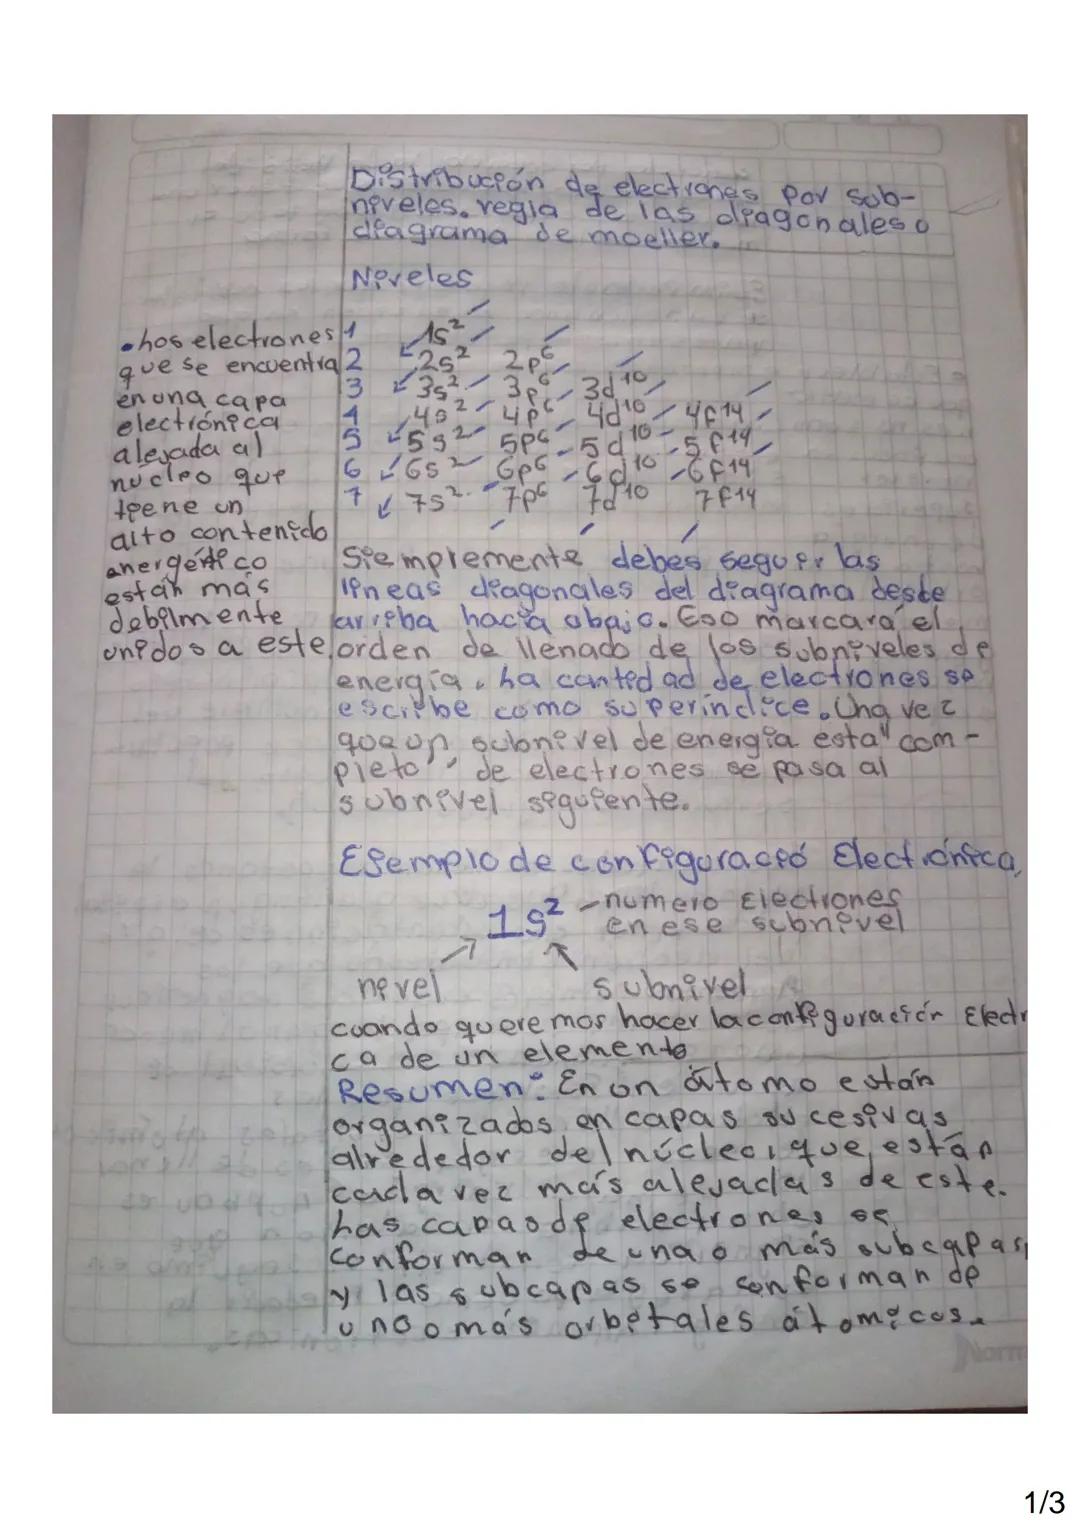 Distribución de electrones por sub-
niveles. regla de las diagonales o
diagrama de moeller.
Niveles
1 1s²
2 2s² 2p⁶
3 3s² 3p⁶ 3d¹⁰
4 4s² 4p⁶ 4d¹⁰ 4f¹⁴
5 5s² 5p⁶ 5d¹⁰ 5f¹⁴
6 6s² 6p⁶ 6d¹⁰ 6f¹⁴
7 7s² 7p⁶ 7d¹⁰ 7f¹⁴
• Los electrones
que se encuentra
en una capa
electrónica
alejada al
nucleo que
tiene un
alto contenido
energético
están más
debilmente
unidos a este.
Siemplemente debes seguir las
lineas diagonales del diagrama deste
arriba hacia abajo. Eso marcará el
orden de llenado de los subniveles de
energía. La cantidad de electrones se
escribe como superíndice. Una vez
que un subnivel de energía esta "com-
pleto" de electrones se pasa al
subnivel siguiente.
Ejemplo de configuració Electrónica
1s² numero Electrones
en ese subnivel
nivel subnivel
cuando queremos hacer la configuración Electr
ca de un elemento
Resumen: En un átomo están
organizados en capas sucesivas
alrededor del núcleo, que están
cada vez más alejadas de este.
Las capas de electrones se
conforman de una o más subcapas,
y las subcapas se conforman de
uno o más orbitales átomicos.
Norm
1/3